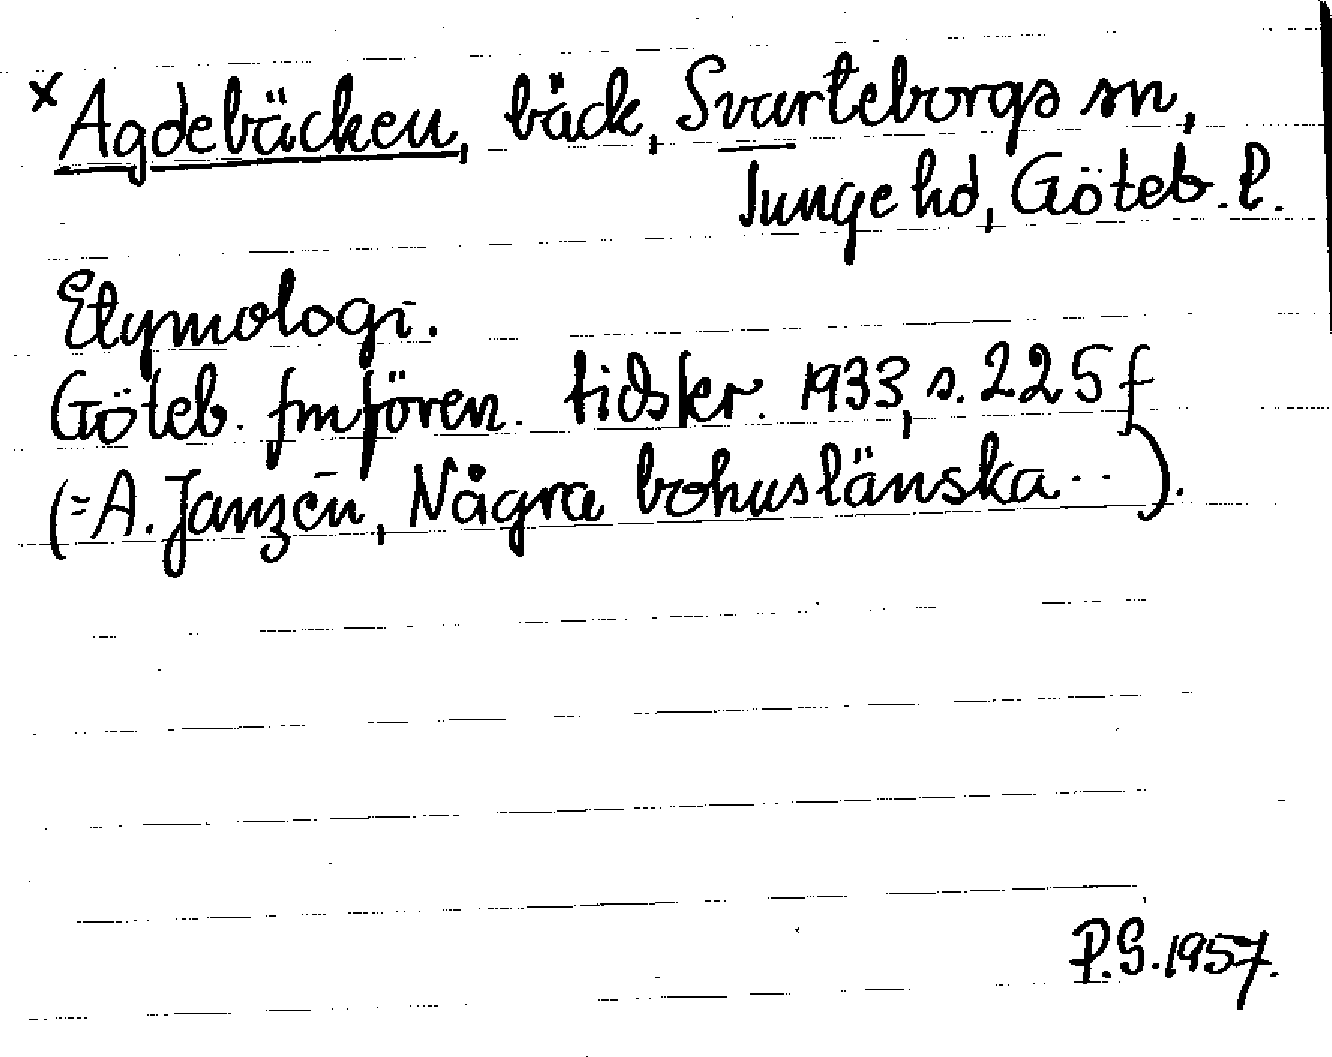 × Agdebäcken, bäck, Svarteborgs sn,
Tunge hd, Göteb. l.
Etymologi.
Göteb. fmfören. tidskr. 1933, s. 225 f
(= A. Janzén, Några bohuslänska ··).
P.G. 1957.